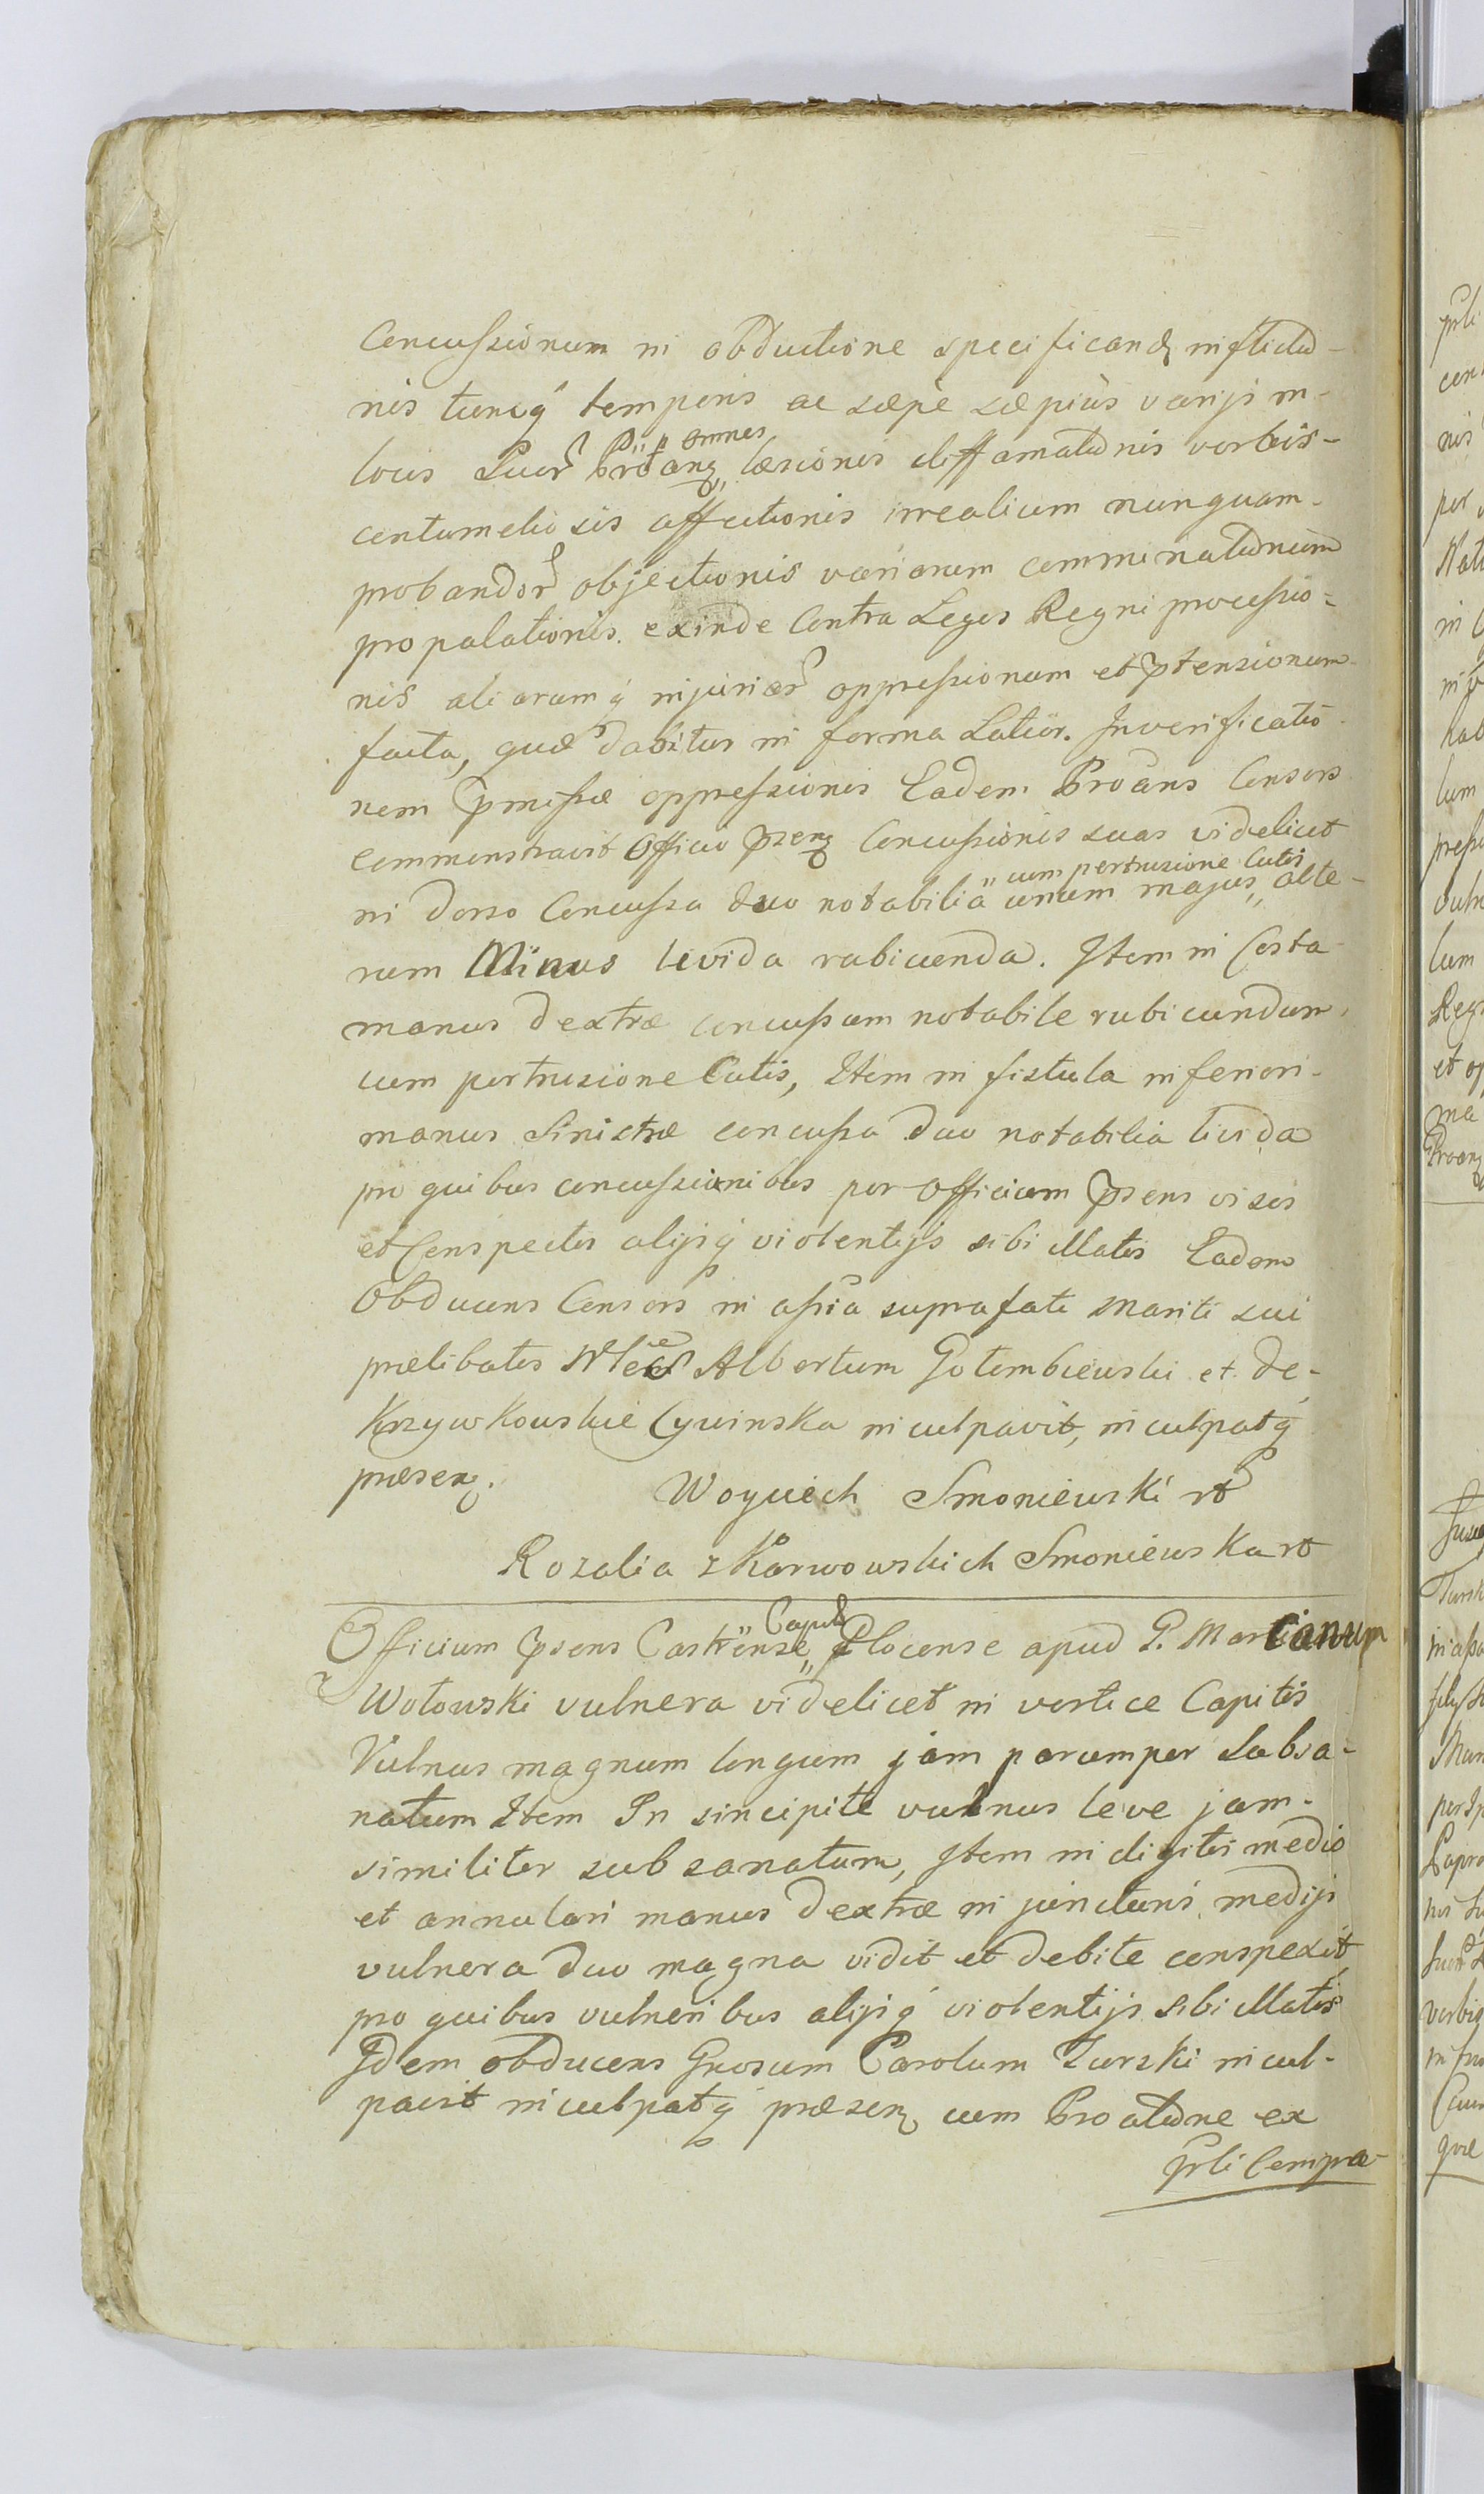 Concussionum in obductione specificand inflictio-
nis tuncq temporis ac sæpè sæpiùs varijs in-
locis Suor Proanz læsionis diffamationis verbis-
Pij omnes
contumeliosis affectionis irrealium nunquam-
probandor objectionis variarum comminationum
propalationis. exinde Contra Leges Regni processio=
nis aliarumq injuriar oppressionum et ptensionum
facta, quæ dabitur in forma Latiòr. In verificatio
nem pmissæ oppressionis Eadem Proans Consors
commonstravit Officio pzenz Concussiones suas videlicet
cum pertrusione Cutis
in dorso Concussa duo notabilia unum majus, alte-
rum Minus livida rubicunda. Item in Costa
manus dextræ concussum notabile rubicundum,
cum pertrusione Cutis, Item in fistula inferiori-
manus Sinistræ concussa duo notabilia livida
pro quibus concussionibus per Officium psens visis
et Conspectis alijsq violentijs sibi illatis Eadem
Obducens Consors in assia suprafati Mariti sui
prælibatos Albertum Gołembiewski et de-
Krzywkowskie Cywinska inculpavit, inculpatq
præsenz. Woyciech Smoniewski
Rozalia z Karwowskich Smoniewska
Capit
Officium psens Castrense Plocense apud G. Marcianum
Wołowski vulnera videlicet in vertice Capitis
Vulnus magnum longum jam parumper Subsa-
natum Item In sincipite vulnus leve jam-
similiter subsanatum, Item in digitis medio
et annulari manus dextræ in juncturis medijs
vulnera duo magna vidit et debite conspexit
pro quibus vulneribus alijsq violentijs sibi illatis
Idem obducens Gnosum Carolum Turski incul-
pavit inculpatq præsenz cum Proatione ex
prli Compa-